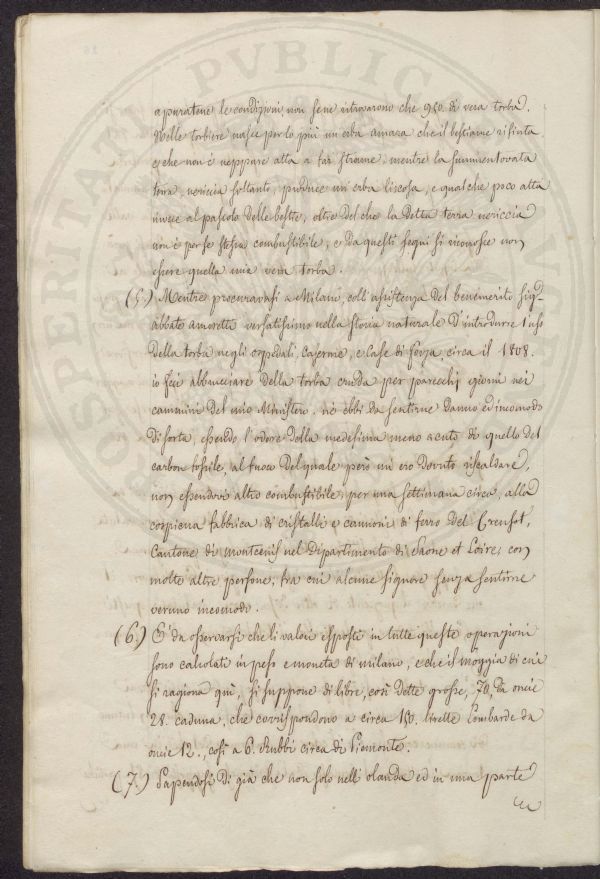 apuratene le condizioni, non sene ritrovarono che 950. di vera torba.
Nelle torbiere nasce perlo più un erba amara che il bestiame rifiuta
e che non è neppure atta a far strame, mentre la summentovata
terra nericcia soltanto, produce un erba liscosa, e qualche poco atta
invece al pascolo delle bestie, oltre del che la detta terra nericcia
non è perse stessa combustibile, e da questi segni si riconosce non
essere quella una vera torba.
(5.) Mentre procuravasi a Milano, coll' assistenza del benemerito Sig.r
abbate amoretti versatissimo nella storia naturale d'introdurre l'uso
della torba negli ospedali, caserme, e Case di forza, circa il 1808.
io feci abbruciare della torba cruda per parecchj giorni nei
cammini del mio Ministero, nè ebbi da sentirne danno ed incomodo
di sorta, essendo l'odore della medesima meno acuto di quello del
carbon fossile, al fuoco del quale però mi ero dovuto riscaldare,
non essendovi altro combustibile, per una settimana circa, alla
cospicua fabbrica di cristalli e cannoni di ferro del Creusot,
Cantone di montcenis nel Dipartimento di Saone et Loire, con
molte altre persone, tra cui alcune signore senza sentirne
veruno incomodo.
(6.) E' da osservarsi che li valori esposti in tutte queste operazioni
sono calcolati in peso e moneta di milano, e che il moggia di cui
si ragiona quì, si suppone di libre, così dette grosse, 70, da oncie
28. caduna, che corrispondono a circa 150. livelle Lombarde da
oncie 12., così a 6. Rubbi circa di Piemonte.
(7.) Sapendosi di già che non solo nell' olanda ed in una parte
PROSPERITATI PVBLICAE